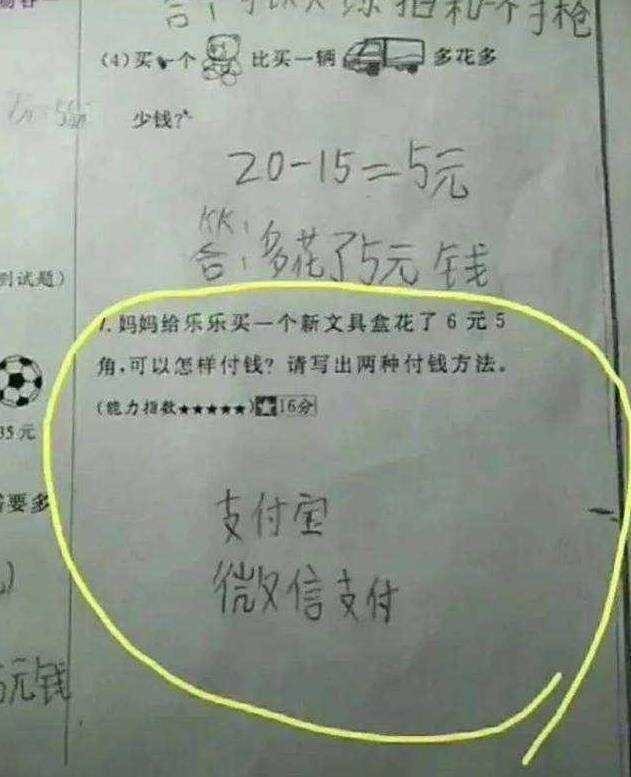 (4)买一个 比买一辆 多花多
少钱?
20-15=5元
答:多花了5元钱
到试题)
7.妈妈给乐乐买一个新文具盒花了 6 元 5
角,可以怎样付钱? 请写出两种付钱方法。
(能力指数★★★★★)★16分
35元
需要多
支付宝
微信支付
5元钱